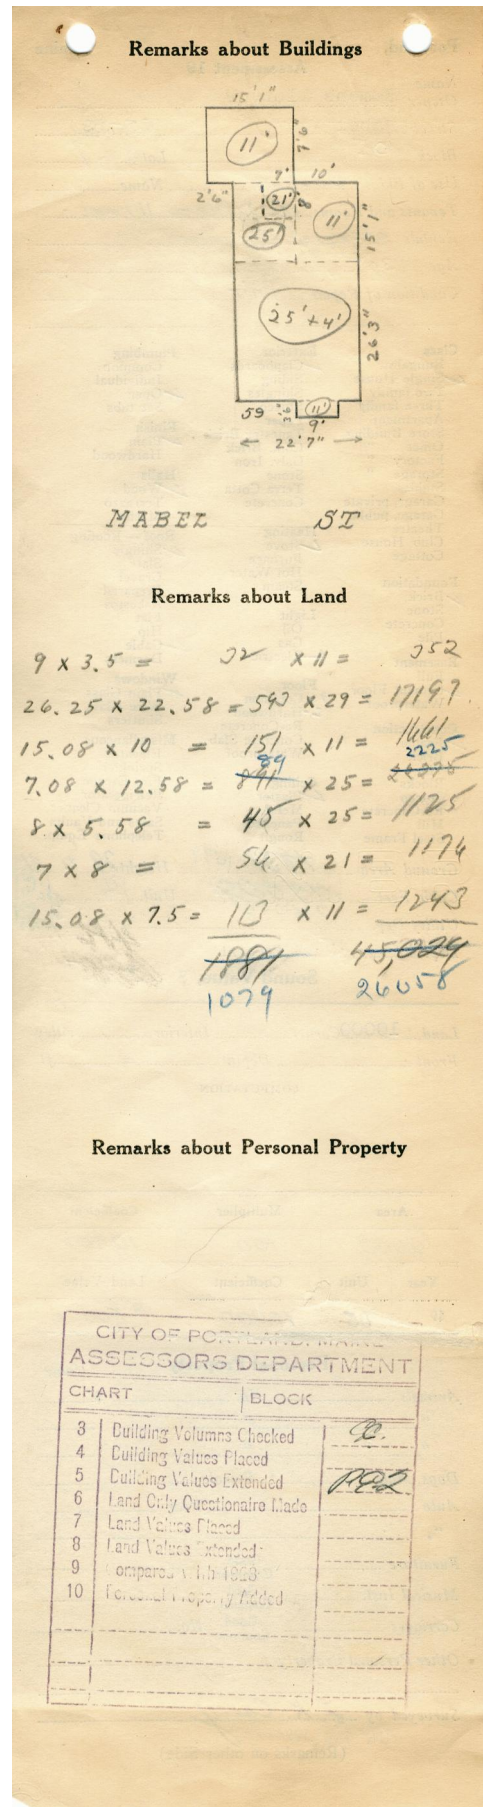 Remarks about Buildings
15'1"
11'
7'6"
9' 10'
2'6"
21' 8'
11'
25'
15'1"
25'+4'
26'3"
59 3'6" 11'
9'
22'7"
MABEL ST
Remarks about Land
9 x 3.5 = 32 x 11 = 352
26.25 x 22.58 = 593 x 29 = 17197
15.08 x 10 = 151 x 11 = 1661
89 2225
7.08 x 12.58 = 891 x 25 = 22275
8 x 5.58 = 45 x 25 = 1125
7 x 8 = 56 x 21 = 1176
15.08 x 7.5 = 113 x 11 = 1243
1881 45,024
1079 26058
Remarks about Personal Property
CITY OF PORTLAND, MAINE
ASSESSORS DEPARTMENT
CHART BLOCK
3 Building Volumns Checked
4 Building Values Placed
5 Building Values Extended
6 Land Only Questionaire Made
7 Land Values Placed
8 Land Values Extended
9 Compared With 1923
10 Personal Property Added